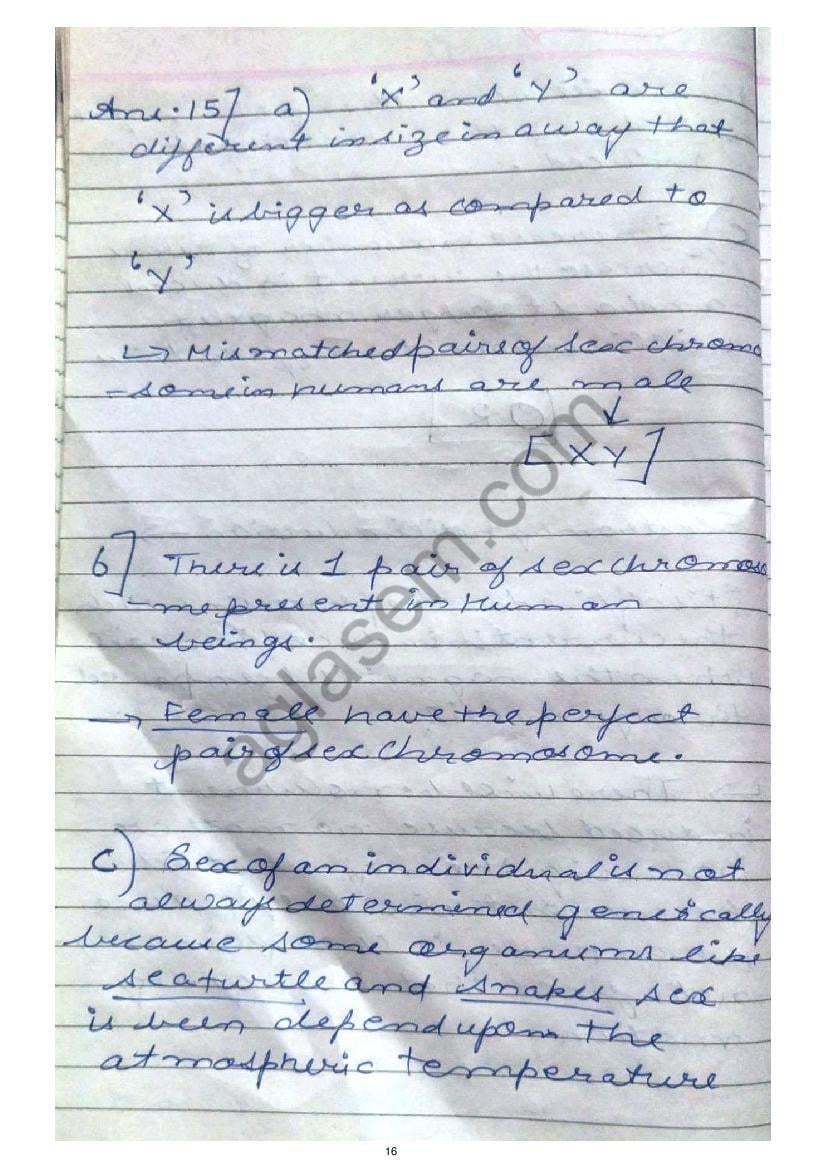 Ans.15] a) 'X' and 'Y' are
different in size in a way that
'X' is bigger as compared to
'Y'
↳ Mismatched pairs of sex chromo
-some in humans are male
↓
[XY]
b] There is 1 pair of sex chromoso
-me present in Human
beings.
→ Female have the perfect
pair of sex chromosome.
c) Sex of an individual is not
always determined genetically
because some organisms like
sea turtle and snakes sex
is been depend upon the
atmospheric temperature
aglasem.com
16